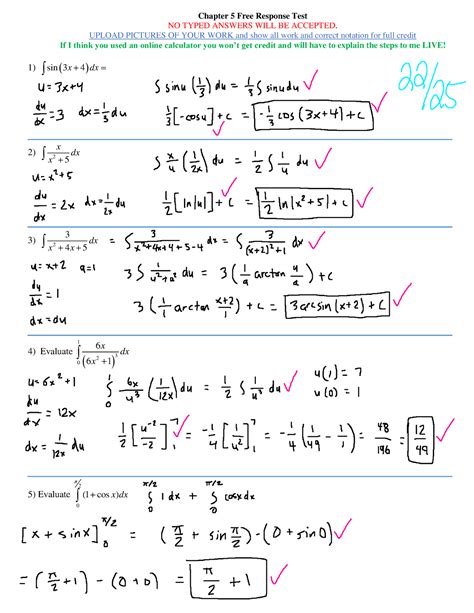 Chapter 5 Free Response Test
NO TYPED ANSWERS WILL BE ACCEPTED.
UPLOAD PICTURES OF YOUR WORK and show all work and correct notation for full credit
If I think you used an online calculator you won't get credit and will have to explain the steps to me LIVE!
22/25
1) ∫ sin(3x + 4) dx =
u = 3x+4
du/dx = 3 dx = 1/3 du
∫ sinu (1/3) du = 1/3 ∫ sinu du
1/3 [-cosu] + C = -1/3 cos (3x+4) + C
2) ∫ x/(x² + 5) dx
u = x² + 5
du/dx = 2x dx = 1/2x du
∫ x/u (1/2x) du = 1/2 ∫ 1/u du
1/2 [ln|u|] + C = 1/2 ln|x² + 5| + C
3) ∫ 3/(x² + 4x + 5) dx = ∫ 3/(x²+4x+4+5-4) dx = ∫ 3/((x+2)²+1) dx
u = x+2 a = 1
du/dx = 1
dx = du
3 ∫ 1/(u²+a²) du = 3 (1/a arctan u/a) + C
3 (1/1 arctan (x+2)/1) + C = 3 arcsin (x+2) + C
4) Evaluate ∫₀¹ 6x/(6x² + 1)³ dx
u = 6x² + 1
du/dx = 12x
dx = 1/12x du
u(1) = 7
u(0) = 1
∫₀¹ 6x/u³ (1/12x) du = 1/2 ∫ 1/u³
1/2 [u⁻²/-2]₁⁷ = -1/4 [1/u²]₁⁷ = -1/4 (1/49 - 1/1) = 48/196 = 12/49
5) Evaluate ∫₀^(π/2) (1 + cos x) dx
∫₀^(π/2) 1 dx + ∫₀^(π/2) cosx dx
[x + sinx]₀^(π/2) = (π/2 + sin π/2) - (0 + sin0)
= (π/2 + 1) - (0+0) = π/2 + 1